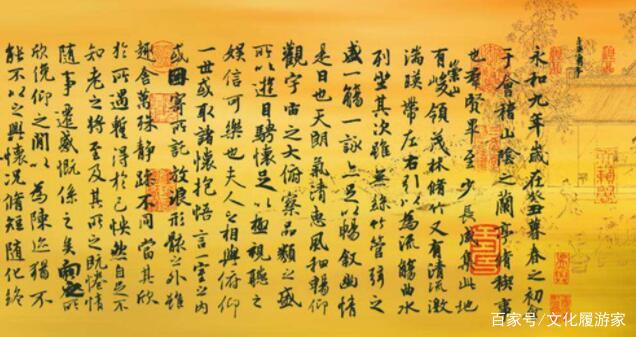 永和九年歲在癸丑暮春之初會
于會稽山陰之蘭亭脩稧事
也羣賢畢至少長咸集此地
有崇山峻領茂林脩竹又有清流激
湍暎帶左右引以為流觴曲水
列坐其次雖無絲竹管弦之
盛一觴一詠亦足以暢敘幽情
是日也天朗氣清惠風和暢仰
觀宇宙之大俯察品類之盛
所以遊目騁懷足以極視聽之
娛信可樂也夫人之相與俯仰
一世或取諸懷抱悟言一室之內
或因寄所託放浪形骸之外雖
趣舍萬殊靜躁不同當其欣
於所遇蹔得於己怏然自足不
知老之將至及其所之既惓情
隨事遷感慨係之矣向之所
欣俛仰之閒以為陳迹猶不
能不以之興懷況脩短隨化終
百家号/文化履游家